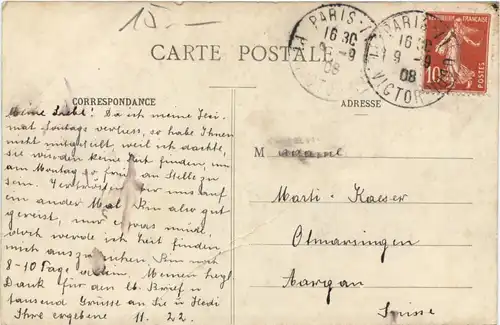 15.—
CARTE POSTALE
PARIS
16 30
9 -9
08
VICTOR
PARIS
16 30
9 -9
08
VICTOR
POSTES
10
CORRESPONDANCE
ADRESSE
Meine Liebe! Da ich meine Hei-
mat Sontags verliess, so habe Ihnen
nicht mitgeteilt, weil ich dachte,
sie werden keine Zeit finden, um
am Montag so früh an Stelle zu
sein. uns auf
ein ander Mal. Bin also gut
gereist, nur etwas müde,
doch werde ich Zeit finden
mich auszuruhen. Bin noch
8-10 Tage Meinen herzl
Dank für den lb. Brief u
tausend Grüsse an Sie u Hedi
Ihre ergebene 11. 22.
M adame
Marti-Kaeser
Otmarsingen
Aargau
Suisse